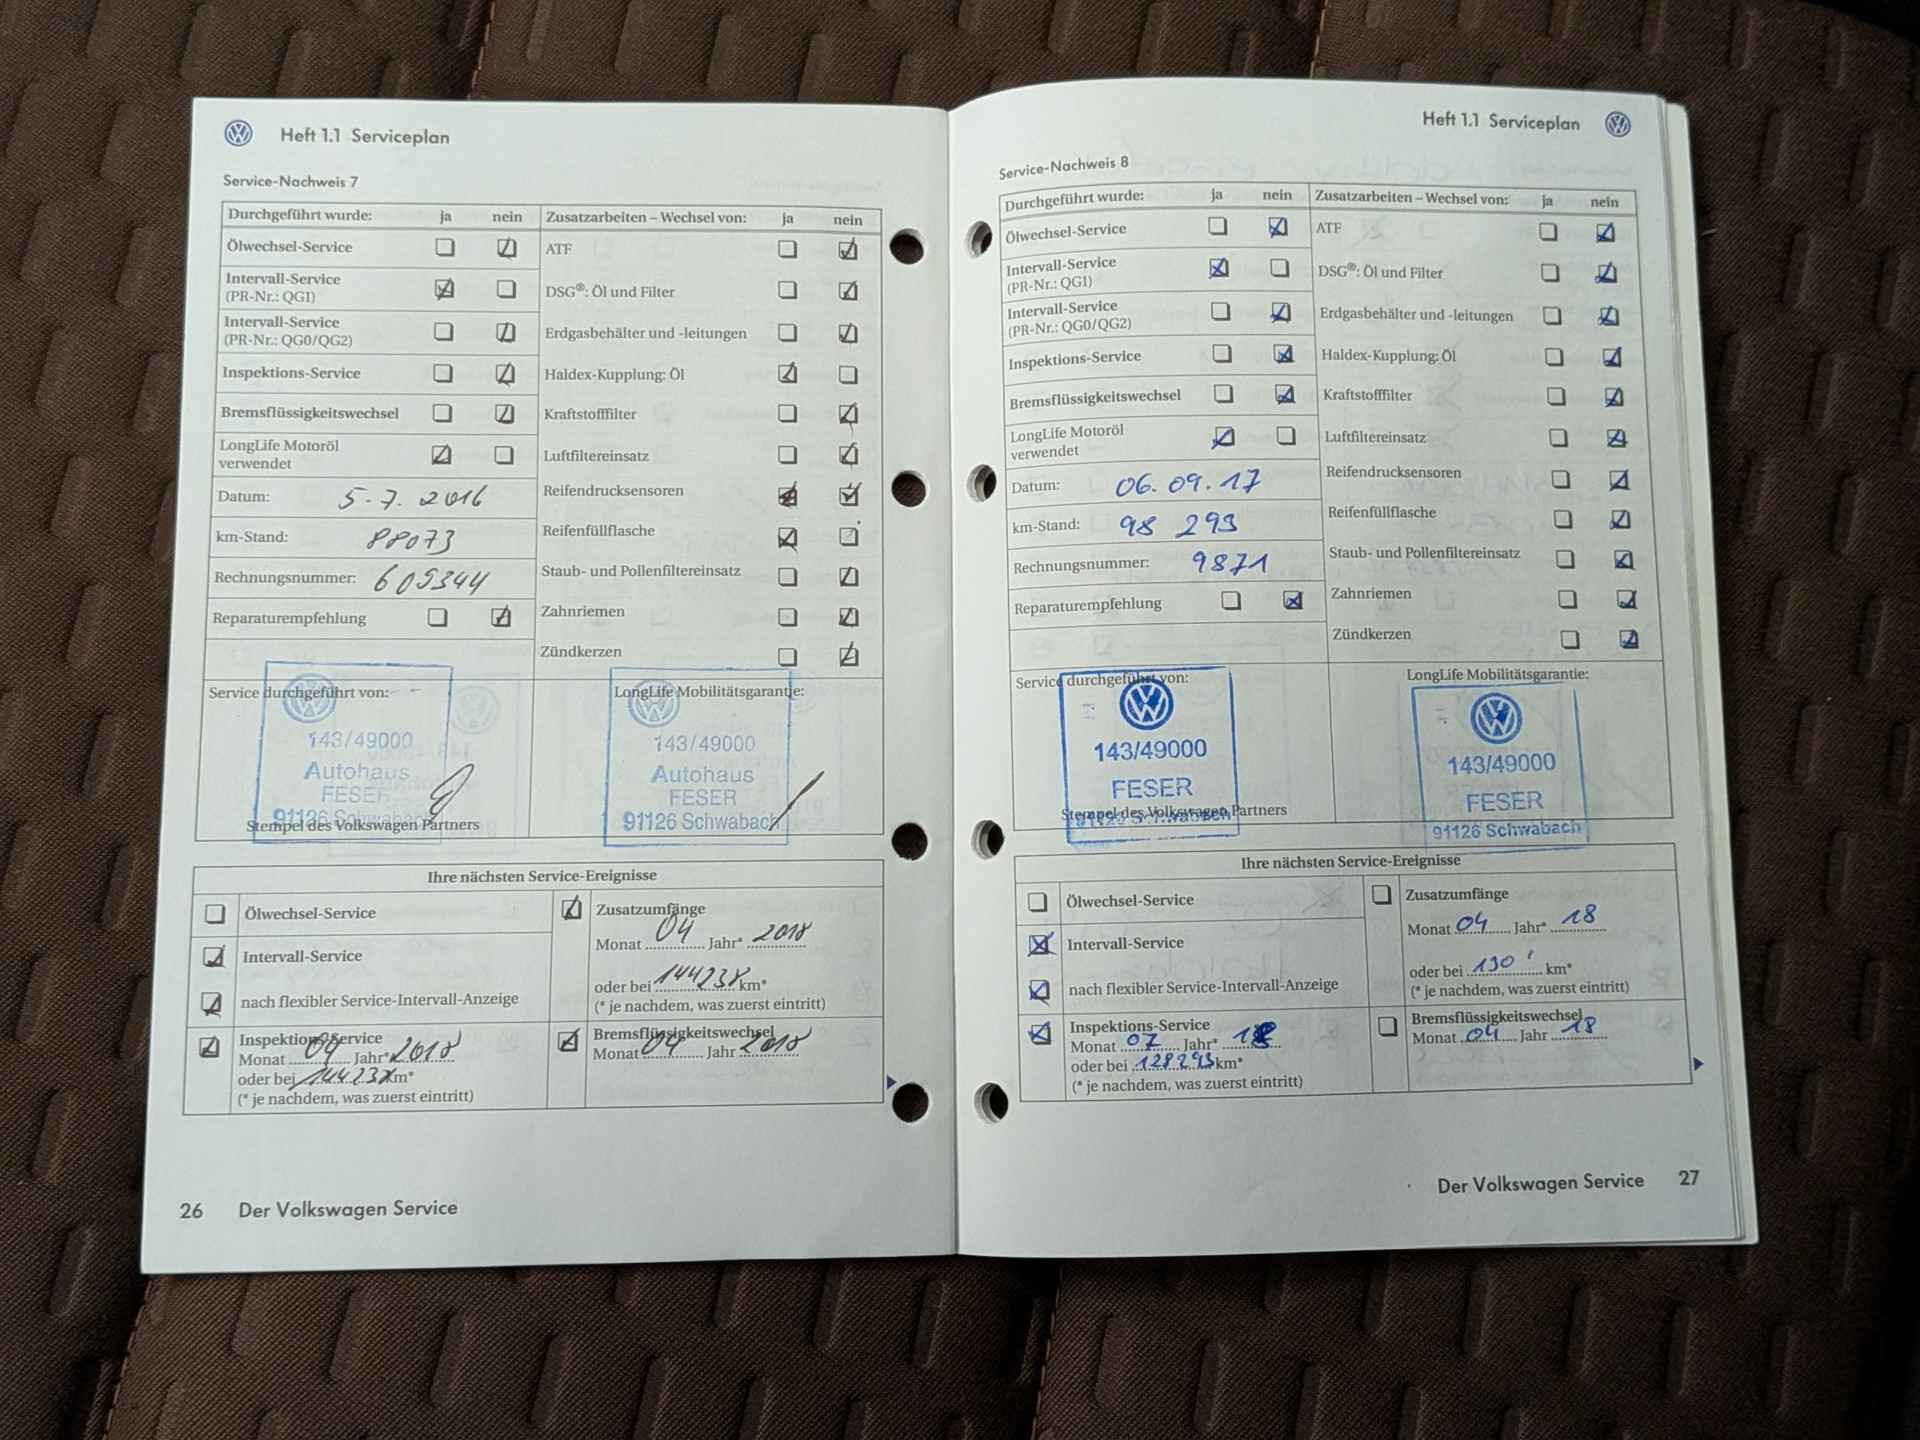 Heft 1.1 Serviceplan
Service-Nachweis 7
Durchgeführt wurde: ja nein Zusatzarbeiten – Wechsel von: ja nein
Ölwechsel-Service ATF
Intervall-Service
(PR-Nr.: QG1) DSG®: Öl und Filter
Intervall-Service
(PR-Nr.: QG0/QG2) Erdgasbehälter und -leitungen
Inspektions-Service Haldex-Kupplung: Öl
Bremsflüssigkeitswechsel Kraftstofffilter
LongLife Motoröl
verwendet Luftfiltereinsatz
Datum: 5.7.2016 Reifendrucksensoren
km-Stand: 88073 Reifenfüllflasche
Rechnungsnummer: 605344 Staub- und Pollenfiltereinsatz
Reparaturempfehlung Zahnriemen
Zündkerzen
Service durchgeführt von: LongLife Mobilitätsgarantie:
143/49000 143/49000
Autohaus Autohaus
FESER FESER
91126 Schwabach 91126 Schwabach
Stempel des Volkswagen Partners
Ihre nächsten Service-Ereignisse
Ölwechsel-Service Zusatzumfänge
Monat 04 Jahr* 2018
Intervall-Service
oder bei 144238 km*
nach flexibler Service-Intervall-Anzeige (* je nachdem, was zuerst eintritt)
Inspektions-Service Bremsflüssigkeitswechsel
Monat 04 Jahr* 2018 Monat 04 Jahr 2018
oder bei 144238 km*
(* je nachdem, was zuerst eintritt)
26 Der Volkswagen Service
Heft 1.1 Serviceplan
Service-Nachweis 8
Durchgeführt wurde: ja nein Zusatzarbeiten – Wechsel von: ja nein
Ölwechsel-Service ATF
Intervall-Service
(PR-Nr.: QG1) DSG®: Öl und Filter
Intervall-Service
(PR-Nr.: QG0/QG2) Erdgasbehälter und -leitungen
Inspektions-Service Haldex-Kupplung: Öl
Bremsflüssigkeitswechsel Kraftstofffilter
LongLife Motoröl
verwendet Luftfiltereinsatz
Datum: 06.09.17 Reifendrucksensoren
km-Stand: 98 293 Reifenfüllflasche
Rechnungsnummer: 9871 Staub- und Pollenfiltereinsatz
Reparaturempfehlung Zahnriemen
Zündkerzen
Service durchgeführt von: LongLife Mobilitätsgarantie:
143/49000 143/49000
FESER FESER
91126 Schwabach 91126 Schwabach
Stempel des Volkswagen Partners
Ihre nächsten Service-Ereignisse
Ölwechsel-Service Zusatzumfänge
Monat 04 Jahr* 18
Intervall-Service
oder bei 130' km*
nach flexibler Service-Intervall-Anzeige (* je nachdem, was zuerst eintritt)
Inspektions-Service Bremsflüssigkeitswechsel
Monat 07 Jahr* 18 Monat 04 Jahr 18
oder bei 128293 km*
(* je nachdem, was zuerst eintritt)
Der Volkswagen Service 27